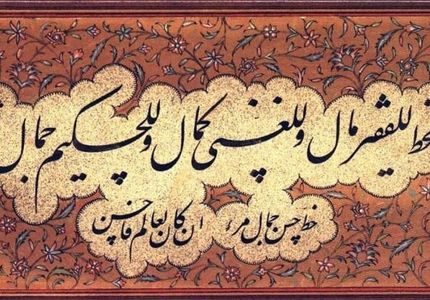 لخط للفقیر مال وللغنی کمال وللحکیم جمال
خط حسن جمال مرء ان کان لعالم فاحسن